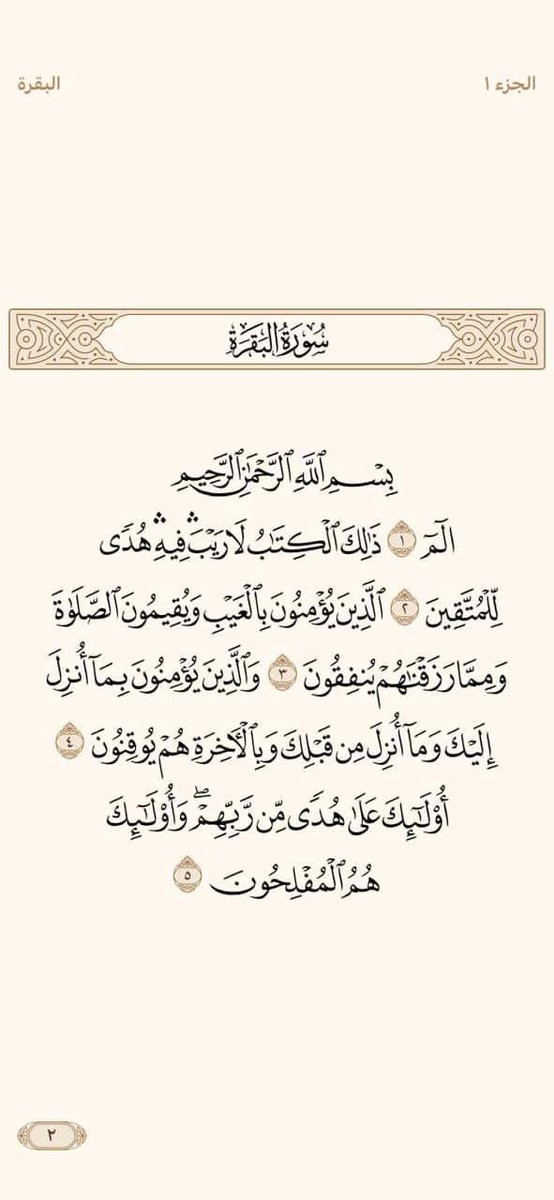 الجزء ١
البقرة
سُورَةُ البَقَرَةِ
بِسْمِ ٱللَّهِ ٱلرَّحْمَٰنِ ٱلرَّحِيمِ
الٓمٓ ١ ذَٰلِكَ ٱلْكِتَٰبُ لَا رَيْبَ ۛ فِيهِ ۛ هُدًى
لِّلْمُتَّقِينَ ٢ ٱلَّذِينَ يُؤْمِنُونَ بِٱلْغَيْبِ وَيُقِيمُونَ ٱلصَّلَوٰةَ
وَمِمَّا رَزَقْنَٰهُمْ يُنفِقُونَ ٣ وَٱلَّذِينَ يُؤْمِنُونَ بِمَآ أُنزِلَ
إِلَيْكَ وَمَآ أُنزِلَ مِن قَبْلِكَ وَبِٱلْـَٔاخِرَةِ هُمْ يُوقِنُونَ ٤
أُو۟لَٰٓئِكَ عَلَىٰ هُدًى مِّن رَّبِّهِمْ ۖ وَأُو۟لَٰٓئِكَ
هُمُ ٱلْمُفْلِحُونَ ٥
٢